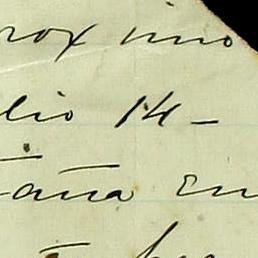 rox imo
lio 14 –
aña En